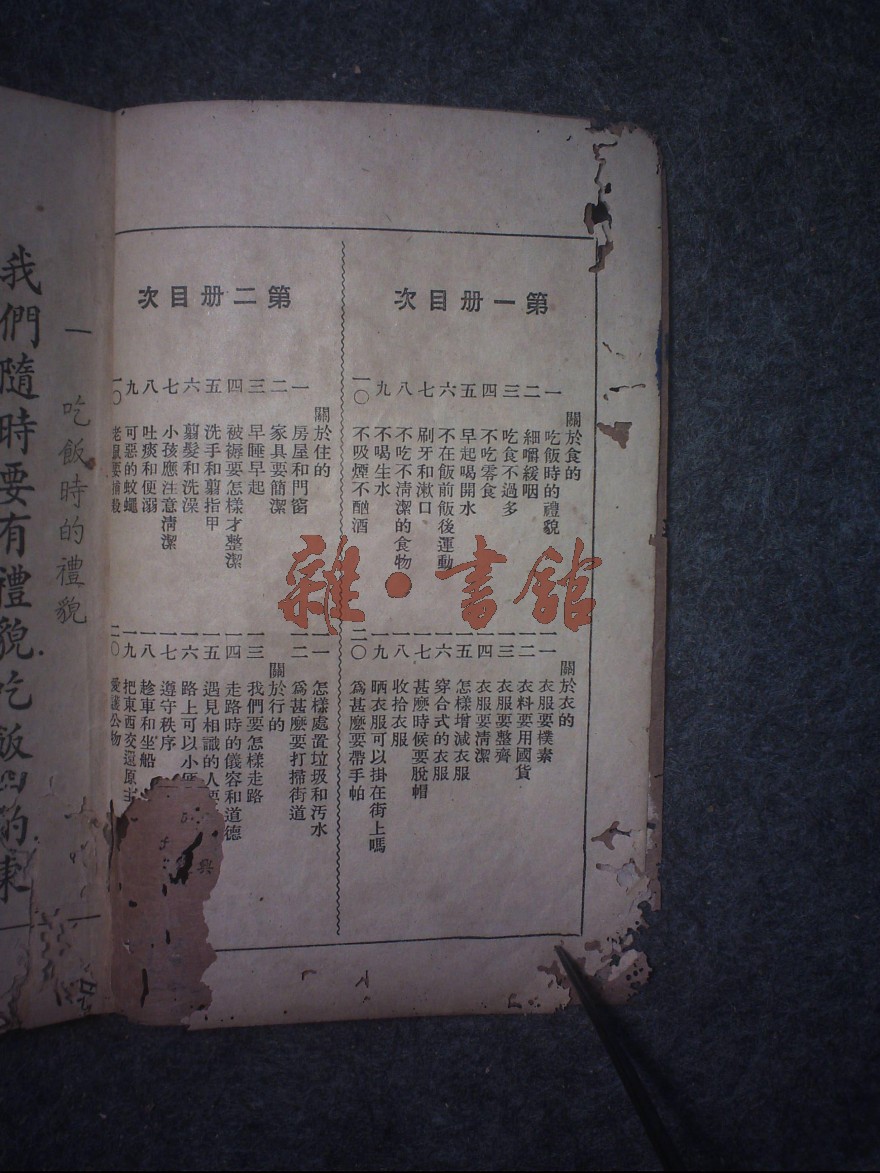 第一册目次
關於食的
一 吃飯時的禮貌
二 細嚼緩咽
三 吃食不過多
四 不吃零食
五 早起喝開水
六 不在飯前飯後運動
七 刷牙和漱口
八 不吃不清潔的食物
九 不喝生水
一〇 不吸煙不酗酒
關於衣的
一一 衣服要樸素
一二 衣料要用國貨
一三 衣服要整齊
一四 衣服要清潔
一五 怎樣增減衣服
一六 穿合式的衣服
一七 甚麼時候要脫帽
一八 收拾衣服
一九 晒衣服可以掛在街上嗎
二〇 爲甚麼要帶手帕
第二册目次
關於住的
一 房屋和門窗
二 家具要簡潔
三 早睡早起
四 被褥要怎樣才整潔
五 洗手和翦指甲
六 翦髮和洗澡
七 小孩應注意清潔
八 吐痰和便溺
九 可惡的蚊蠅
一〇 老鼠要捕殺
一一 怎樣處置垃圾和汚水
一二 爲甚麼要打掃街道
關於行的
一三 我們要怎樣走路
一四 走路時的儀容和道德
一五 遇見相識的人要
一六 路上可以小便
一七 遵守秩序
一八 趁車和坐船
一九 把東西交還原主
二〇 愛護公物
一 吃飯時的禮貌
我們隨時要有禮貌吃飯的
雜·書館